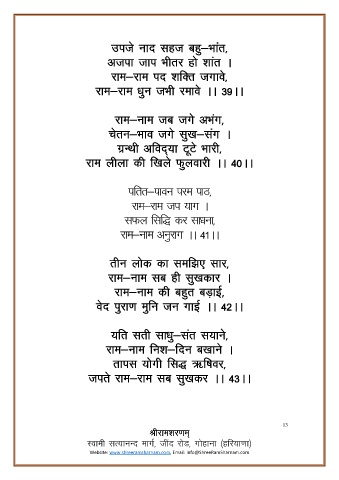 उपजे नाद सहज बहु–भांत,
अजपा जाप भीतर हो शांत ।
राम–राम पद शक्ति जगावे,
राम–राम धुन जभी रमावे ।। 39।।
राम–नाम जब जगे अभंग,
चेतन–भाव जगे सुख–संग ।
ग्रन्थी अविद्या टूटे भारी,
राम लीला की खिले फुलवारी ।। 40।।
पतित–पावन परम पाठ,
राम–राम जप याग ।
सफल सिद्धि कर साधना,
राम–नाम अनुराग ।। 41।।
तीन लोक का समझिए सार,
राम–नाम सब ही सुखकार ।
राम–नाम की बहुत बड़ाई,
वेद पुराण मुनि जन गाई ।। 42।।
यति सती साधु–संत सयाने,
राम–नाम निश–दिन बखाने ।
तापस योगी सिद्ध ऋषिवर,
जपते राम–राम सब सुखकर ।। 43।।
15
श्रीरामशरणम्
स्वामी सत्यानन्द मार्ग, जींद रोड, गोहाना (हरियाणा)
Website: www.shreeramsharnam.com, Email: info@ShreeRamSharnam.com